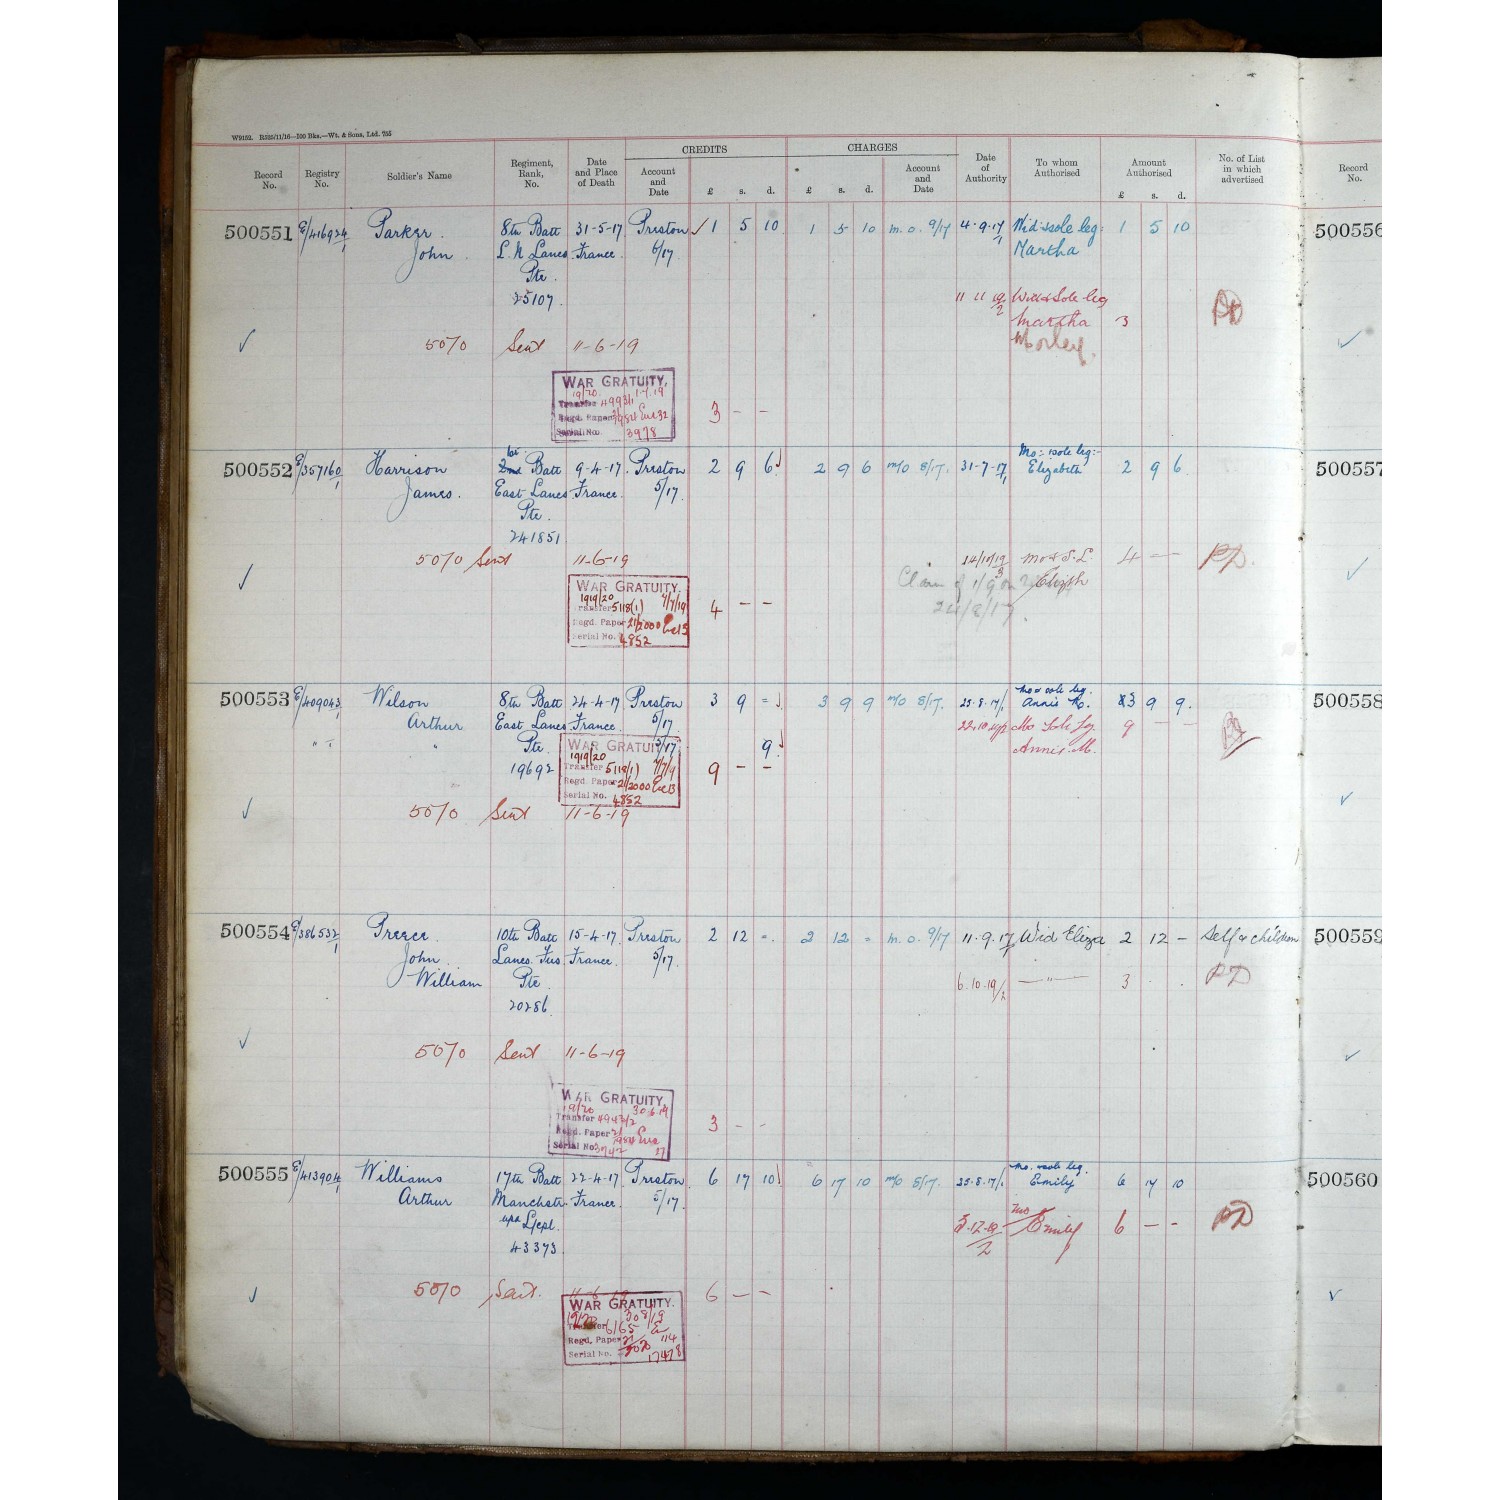 W9152. R525/11/16—100 Bks.—Wt. & Sons, Ltd. 755
CREDITS CHARGES
Record No. Registry No. Soldier's Name Regiment, Rank, No. Date and Place of Death Account and Date £ s. d. £ s. d. Account and Date Date of Authority To whom Authorised Amount Authorised £ s. d. No. of List in which advertised Record No.
500551 E/416924/1 Parker 8th Batt 31-5-17 Preston 1 5 10 1 5 10 m.o. 9/17 4-9-17/1 Wid: sole leg: 1 5 10 500556
John L.N. Lancs France. 6/17. Martha
Pte.
25107. 11 11 19/2 Wid & Sole leg
Martha 3 PD
50/0 Sent 11-6-19 Morley.
WAR GRATUITY,
19/20. 1-7.19
Transfer 4993/1
Regd. Paper
Serial No. 3978
3 - -
500552 E/357160/1 Harrison 1st 2nd Batt 9-4-17. Preston 2 9 6 2 9 6 m/o 8/17. 31-7-17/1 Mo: sole leg:- Elizabeth 2 9 6. 500557
James. East Lancs France. 5/17.
Pte.
241851
50/0 Sent 11-6-19 14/10/19 Mo & S.L. 4 - - PD.
Claim of 1/9 on Elizth
24/8/17.
WAR GRATUITY.
1919/20 7/7/19
Transfer 5118(1)
Regd. Paper 21/2000
Serial No. 4852
4 - -
500553 E/409043/1 Wilson 8th Batt 24-4-17 Preston 3 9 = 3 9 9 m/o 8/17. 25.8.17/1 mo & sole leg. Annie M. 3 9 9. 500558
Arthur East Lancs France. 5/17 22.10.19/2 Mo Sole Leg 9 - -
Pte 5/17 9 Annie. M.
19692
WAR GRATUITY
1919/20
Transfer 5118(1) 7/7/19
Regd. Paper 21/2000
Serial No. 4852
9 - -
50/0 Sent 11-6-19
500554 E/386532/1 Preece. 10th Batt 15-4-17. Preston 2 12 =. 2 12 = m.o. 9/17 11.9.17/1 Wid Eliza 2 12 - Self & children 500559
John Lancs. Fus. France. 5/17.
William Pte. 6.10.19/2 —"— 3 . . PD
20286.
50/0 Sent 11-6-19
WAR GRATUITY,
19/20 30.6.19
Transfer 4943/2
Regd. Paper
Serial No 3742
3 - -
500555 E/413904/1 Williams 17th Batt 22-4-17. Preston. 6 17 10 6 17 10 m/o 8/17. 25.8.17/1 mo. sole leg. Emily 6 17 10 500560
Arthur Manchstr. France. 5/17.
upd L/cpl. 5-12-19/2 mo Emily 6 - - PD
43373.
50/0 Sent. 11-6-19 6 - -
WAR GRATUITY.
Transfer 6165
Regd. Paper
Serial No. 17478